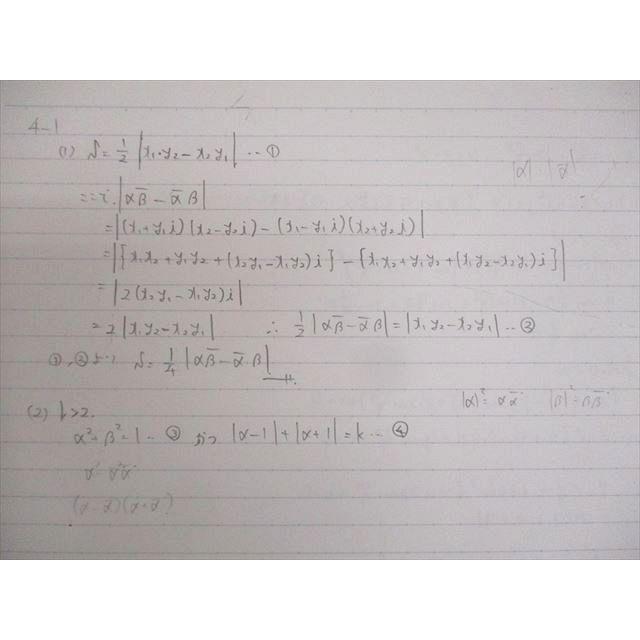 4-1
(1) S = 1/2 |x₁y₂ - x₂y₁| … ①
|α| |ᾱ|
ここで |αβ̄ - ᾱβ|
= |(x₁+y₁i)(x₂-y₂i) - (x₁-y₁i)(x₂+y₂i)|
= |{x₁x₂ + y₁y₂ + (x₂y₁ - x₁y₂)i} - {x₁x₂ + y₁y₂ + (x₁y₂ - x₂y₁)i}|
= |2(x₂y₁ - x₁y₂)i|
= 2|x₁y₂ - x₂y₁| ∴ 1/2 |αβ̄ - ᾱβ| = |x₁y₂ - x₂y₁| … ②
①, ②より S = 1/4 |αβ̄ - ᾱ·β|
|α|² = αᾱ |β|² = ββ̄
(2) k>2.
α² - β² = 1 … ③ かつ |α-1| + |α+1| = k … ④